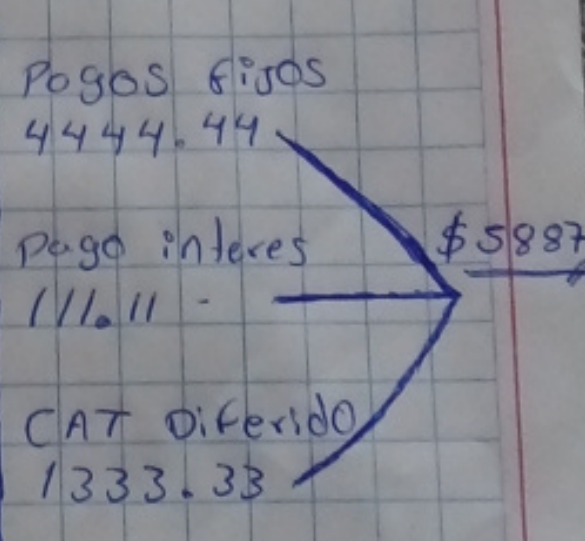 Pagos fijos
4444.44
$5887
Pago interes
111.11 -
CAT Diferido
1333.33